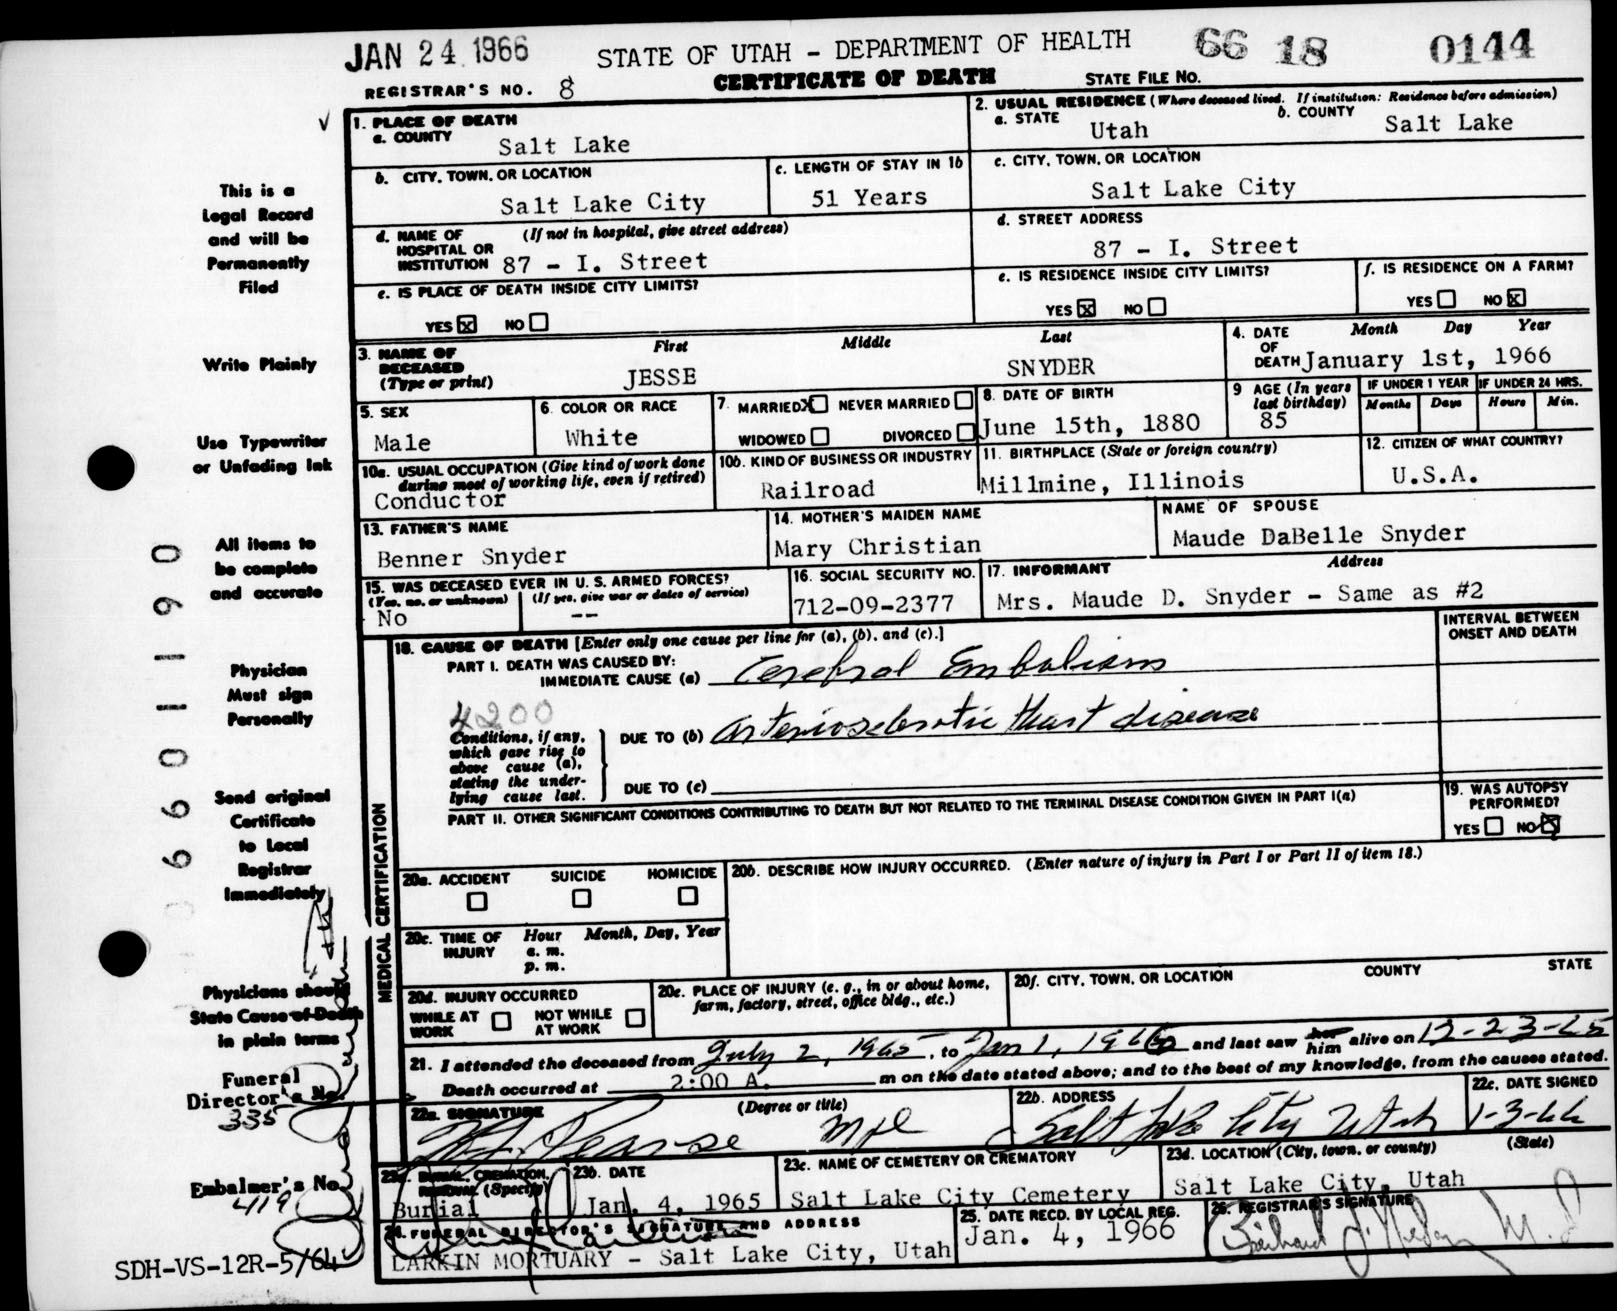 JAN 24 1966
STATE OF UTAH - DEPARTMENT OF HEALTH
66 18 0144
REGISTRAR'S NO. 8
CERTIFICATE OF DEATH
STATE FILE NO.
1. PLACE OF DEATH
a. COUNTY
Salt Lake
2. USUAL RESIDENCE (Where deceased lived. If institution: Residence before admission)
a. STATE
Utah
b. COUNTY
Salt Lake
b. CITY, TOWN, OR LOCATION
Salt Lake City
c. LENGTH OF STAY IN 1b
51 Years
c. CITY, TOWN, OR LOCATION
Salt Lake City
d. NAME OF HOSPITAL OR INSTITUTION
(If not in hospital, give street address)
87 - I. Street
d. STREET ADDRESS
87 - I. Street
e. IS PLACE OF DEATH INSIDE CITY LIMITS?
YES X NO
e. IS RESIDENCE INSIDE CITY LIMITS?
YES X NO
f. IS RESIDENCE ON A FARM?
YES NO X
3. NAME OF DECEASED
(Type or print)
First Middle Last
JESSE SNYDER
4. DATE OF DEATH
Month Day Year
January 1st, 1966
5. SEX
Male
6. COLOR OR RACE
White
7. MARRIED X NEVER MARRIED
WIDOWED DIVORCED
8. DATE OF BIRTH
June 15th, 1880
9 AGE (In years last birthday)
85
IF UNDER 1 YEAR
Months Days
IF UNDER 24 HRS.
Hours Min.
10a. USUAL OCCUPATION (Give kind of work done during most of working life, even if retired)
Conductor
10b. KIND OF BUSINESS OR INDUSTRY
Railroad
11. BIRTHPLACE (State or foreign country)
Millmine, Illinois
12. CITIZEN OF WHAT COUNTRY?
U.S.A.
13. FATHER'S NAME
Benner Snyder
14. MOTHER'S MAIDEN NAME
Mary Christian
NAME OF SPOUSE
Maude DaBelle Snyder
15. WAS DECEASED EVER IN U. S. ARMED FORCES?
(Yes, no, or unknown) (If yes, give war or dates of service)
No --
16. SOCIAL SECURITY NO.
712-09-2377
17. INFORMANT Address
Mrs. Maude D. Snyder - Same as #2
18. CAUSE OF DEATH [Enter only one cause per line for (a), (b), and (c).]
INTERVAL BETWEEN ONSET AND DEATH
PART I. DEATH WAS CAUSED BY:
IMMEDIATE CAUSE (a) Cerebral Embolism
4200
Conditions, if any,
which gave rise to
above cause (a),
stating the under-
lying cause last.
DUE TO (b) arteriosclerotic Heart disease
DUE TO (c)
PART II. OTHER SIGNIFICANT CONDITIONS CONTRIBUTING TO DEATH BUT NOT RELATED TO THE TERMINAL DISEASE CONDITION GIVEN IN PART I(a)
19. WAS AUTOPSY PERFORMED?
YES NO X
MEDICAL CERTIFICATION
20a. ACCIDENT SUICIDE HOMICIDE
20b. DESCRIBE HOW INJURY OCCURRED. (Enter nature of injury in Part I or Part II of item 18.)
20c. TIME OF INJURY
Hour Month, Day, Year
a. m.
p. m.
20d. INJURY OCCURRED
WHILE AT WORK NOT WHILE AT WORK
20e. PLACE OF INJURY (e. g., in or about home, farm, factory, street, office bldg., etc.)
20f. CITY, TOWN, OR LOCATION COUNTY STATE
21. I attended the deceased from July 2, 1965, to Jan 1, 1966 and last saw her him alive on 12-23-65
Death occurred at 2:00 A. m on the date stated above; and to the best of my knowledge, from the causes stated.
22a. SIGNATURE (Degree or title)
Pearse MD
22b. ADDRESS
Salt Lake City Utah
22c. DATE SIGNED
1-3-66
23a. BURIAL, CREMATION, REMOVAL (Specify)
Burial
23b. DATE
Jan. 4, 1965
23c. NAME OF CEMETERY OR CREMATORY
Salt Lake City Cemetery
23d. LOCATION (City, town, or county) (State)
Salt Lake City, Utah
24. FUNERAL DIRECTOR'S SIGNATURE AND ADDRESS
LARKIN MORTUARY - Salt Lake City, Utah
25. DATE RECD. BY LOCAL REG.
Jan. 4, 1966
26. REGISTRAR'S SIGNATURE
M.D.
This is a
Legal Record
and will be
Permanently
Filed
Write Plainly
Use Typewriter
or Unfading Ink
All items to
be complete
and accurate
Physician
Must sign
Personally
Send original
Certificate
to Local
Registrar
Immediately
Physicians should
State Cause of Death
in plain terms
Funeral
Director's No.
335
Embalmer's No.
419
SDH-VS-12R-5/64
660 1190